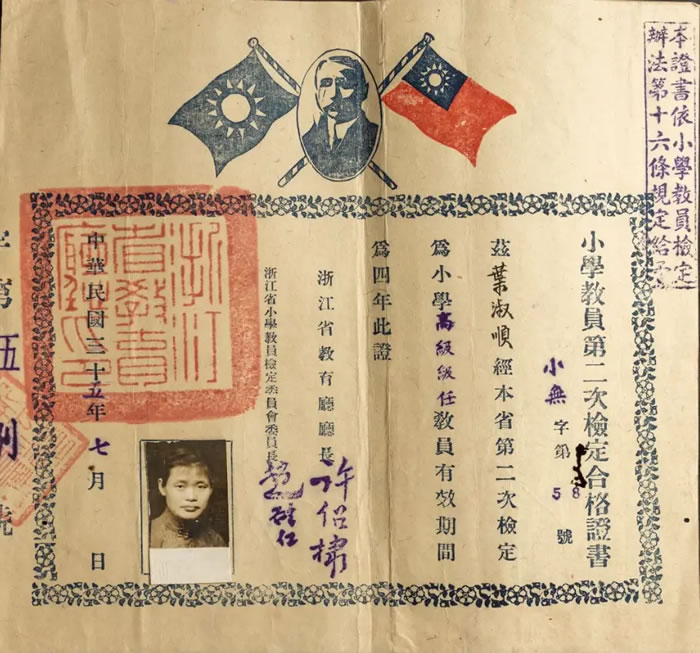 本證書依小學教員檢定
辦法第十六條規定給
小學教員第二次檢定合格證書
小無字第58號
茲葉淑順經本省第二次檢定
為小學高級級任教員有效期間
為四年此證
浙江省教育廳廳長
許紹棣
浙江省小學教員檢定委員會委員長
中華民國三十五年七月 日
浙江
省教育
廳印
伍
號